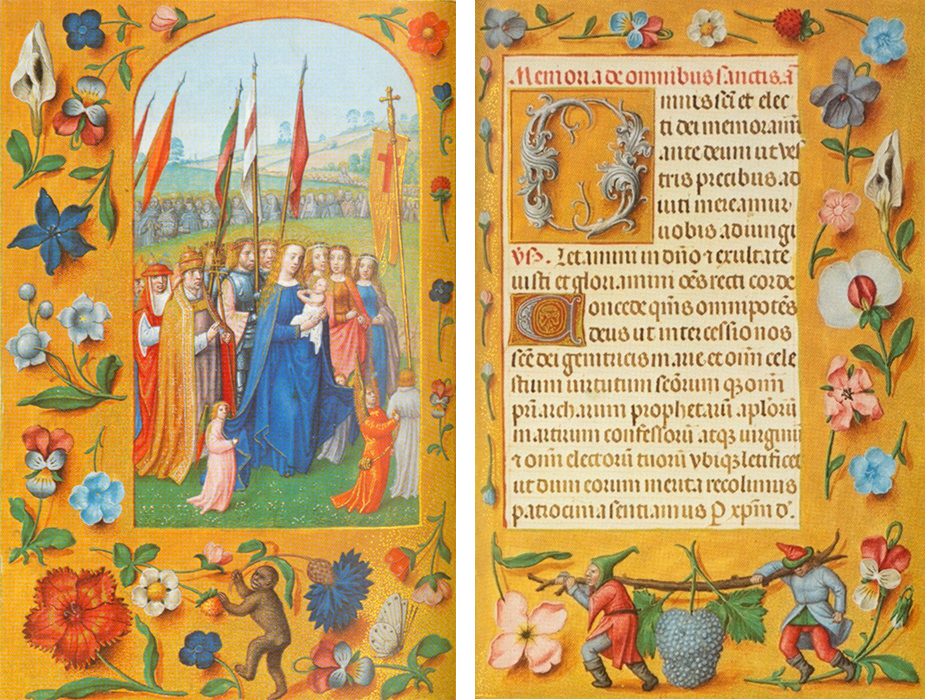 Memoria de omnibus sanctis. ā
Omnes scī et elec
ti dei memoramī
ante deum ut ves
tris precibus ad
iuti mereamur
uobis adiungi
Vs. Letamini in dño ⁊ exultate
iusti et gloriamini oēs recti corde
Concede qm̄s omnipotēs
deus ut intercessio nos
scē dei genitricis marie et oīm cele
stium uirtutum scōrum qꝫ omī
prīarcharum prophetarū aplorū
martirum confessorū atqꝫ uirginū
⁊ omī electorū tuorū ubiqꝫ letificet
ut dum eorum merita recolimus
patrocinia sentiamus P xp̄m d̄.